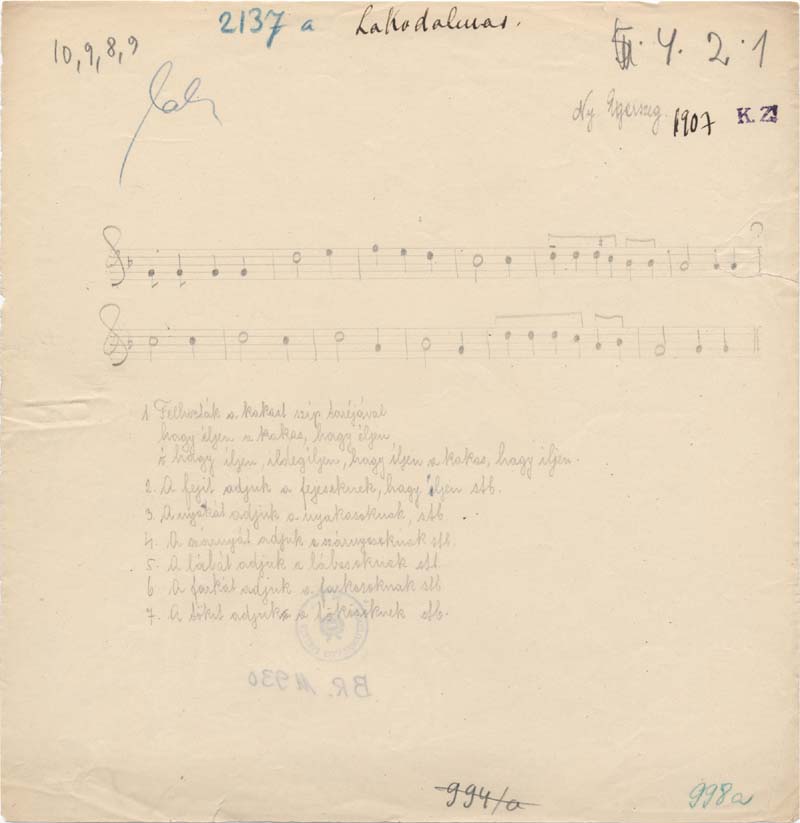 2137 a Lakodalmas.
10, 9, 8, 9
4. 2. 1
Ny. Egerszeg. 1907 K.Z.
1 Felhozták a kakast szép taréjával
hagy éljen a kakas, hagy éljen
s hagy iljen, ildegiljen, hagy iljen a kakas, hagy iljen.
2. A fejit adjuk a fejeseknek, hagy iljen stb.
3. A nyakát adjuk a nyakasoknak, stb
4. A szárnyát adjuk a szárnyasoknak stb.
5. A lábát adjuk a lábosoknak stb
6 A farkát adjuk a farkasoknak stb
7. A tökit adjuk a tökösöknek stb.
BR. 11930
994/a
998a